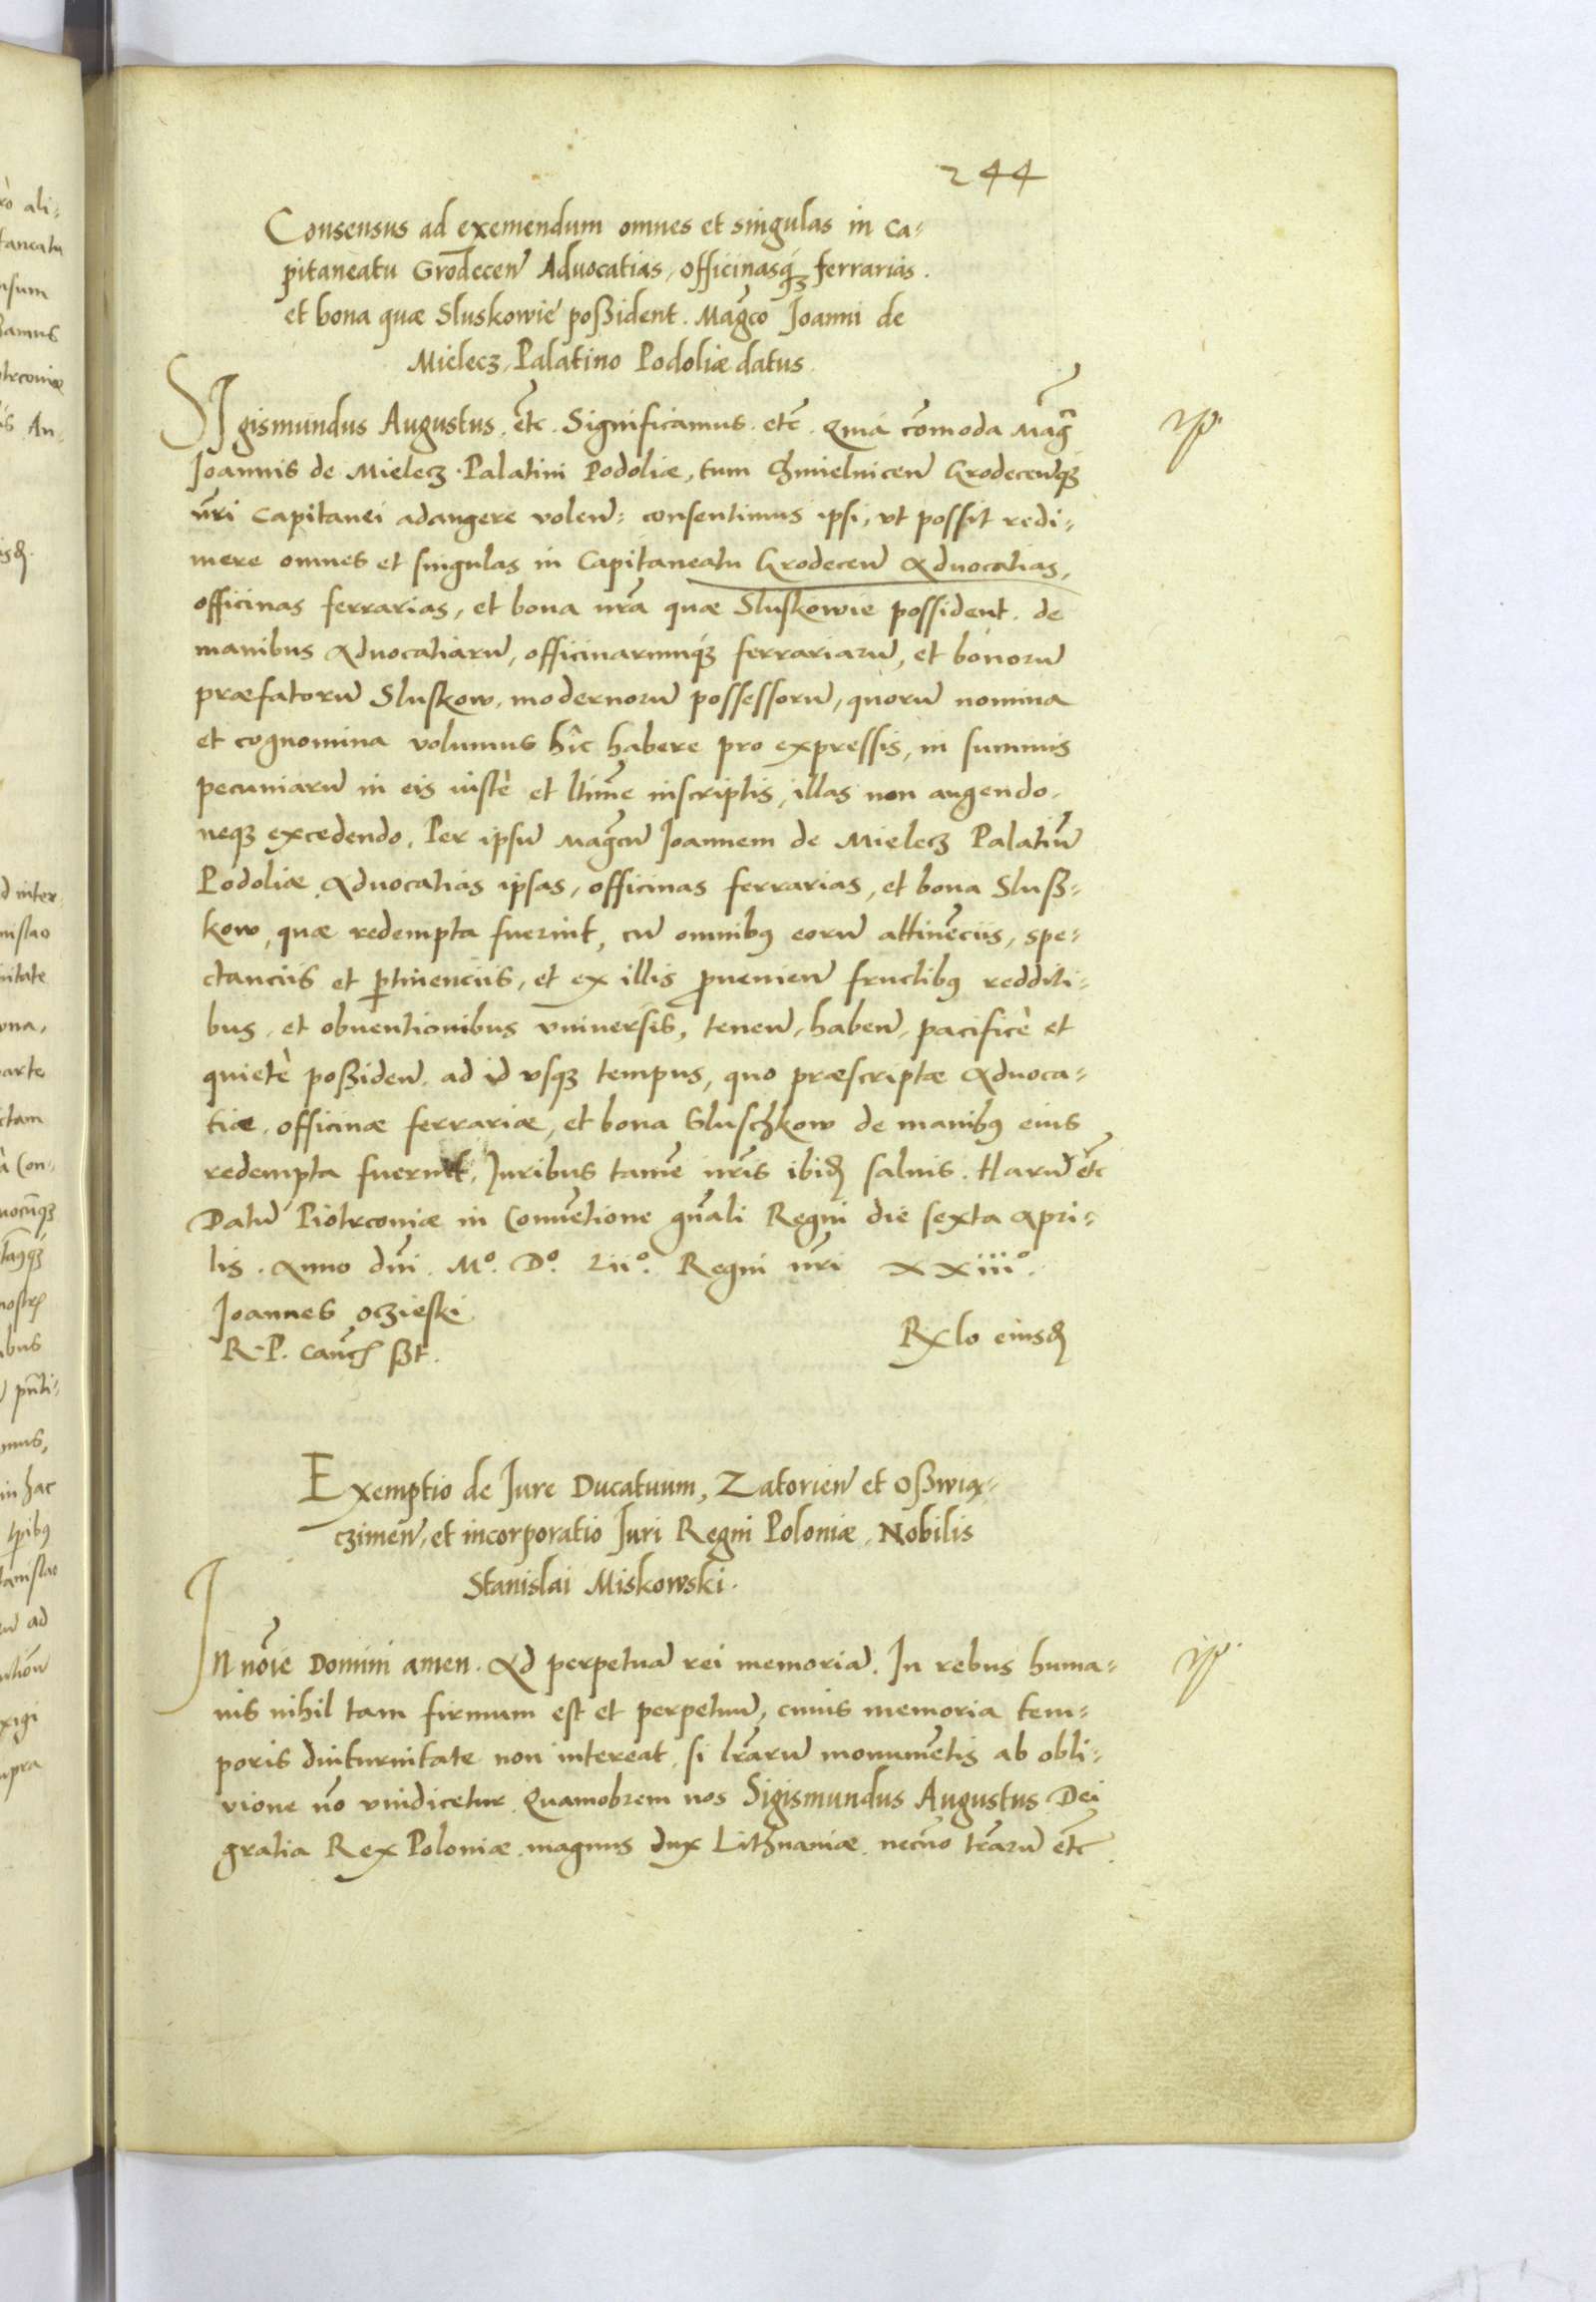 244
Consensus ad exemendum omnes et singulas in ca=
pitaneatu Grodecen̄ Advocatias, officinasq́ꝫ ferrarias.
et bona quæ Sluskowie poßident. Mag̃co Joanni de
Mielecz, Palatino Podoliæ datus.
SIgismundus Augustus. etc̃. Significamus. etc̃. Quia cõmoda Mag̃ci
Joannis de Mielecz. Palatini Podoliæ, tum Chmielnicen̄ Grodecen̄qꝫ
nr̃i Capitanei adaugere volen̄= consentimus ipsi, vt possit redi=
mere omnes et singulas in Capitaneatu Grodecen̄ Aduocatias,
officinas ferrarias, et bona nrã quæ Sluskowie possident. de
manibus Aduocatiarū, officinarumq́ꝫ ferrariarū, et bonorū
præfatorū Sluskow, modernorū possessorū, quorū nomina
et cognomina volumus hîc habere pro expressis, in summis
pecuniarū in eis iustè et ltimẽ inscriptis, illas non augendo.
neqꝫ excedendo. Per ipsū Mag̃cū Joannem de Mielecz Palatinū
Podoliæ Aduocatias ipsas, officinas ferrarias, et bona Sluß=
kow, quæ redempta fuerint, cū omnibꝰ eorū attinẽciis, spe=
ctanciis et ꝑtinenciis, et ex illis ꝓuenien̄ fructibꝰ redditi=
bus, et obuentionibus vniuersis, tenen̄, haben̄, pacificè et
quietè poßiden̄. ad id vsqꝫ tempus, quo præscriptæ Aduoca=
tiæ, officinæ ferrariæ, et bona Sluschkow de manibꝰ eius
redempta fuerint. Juribus tamẽ nr̃is ibid̶ saluis. Harū etc̃
Datū Piotrcoviæ in Conuẽtione gn̄ali Regni die sexta Apri=
lis. Anno dn̄i. Mº. Dº. Lii°. Regni nr̃i XXiii°.
Joannes Oczieski
R. P. Canc̃ ßt.
Rxlo eiusd̶
Exemptio de Jure Ducatuum, Zatorien̄ et Oßwią=
czimen̄, et incorporatio Juri Regni Poloniæ, Nobilis
Stanislai Miskowski.
IN noĩe Domini amen. Ad perpetuā rei memoriā. In rebus huma=
nis nihil tam firmum est et perpetuū, cuius memoria tem=
poris diuturnitate non intereat, si lrãrū monumẽtis ab obli=
vione nõ vindicetur. Quamobrem nos Sigismundus Augustus Dei
gratia Rex Poloniæ. magnus dux Lithuaniæ. necnō trãrū etc̃.